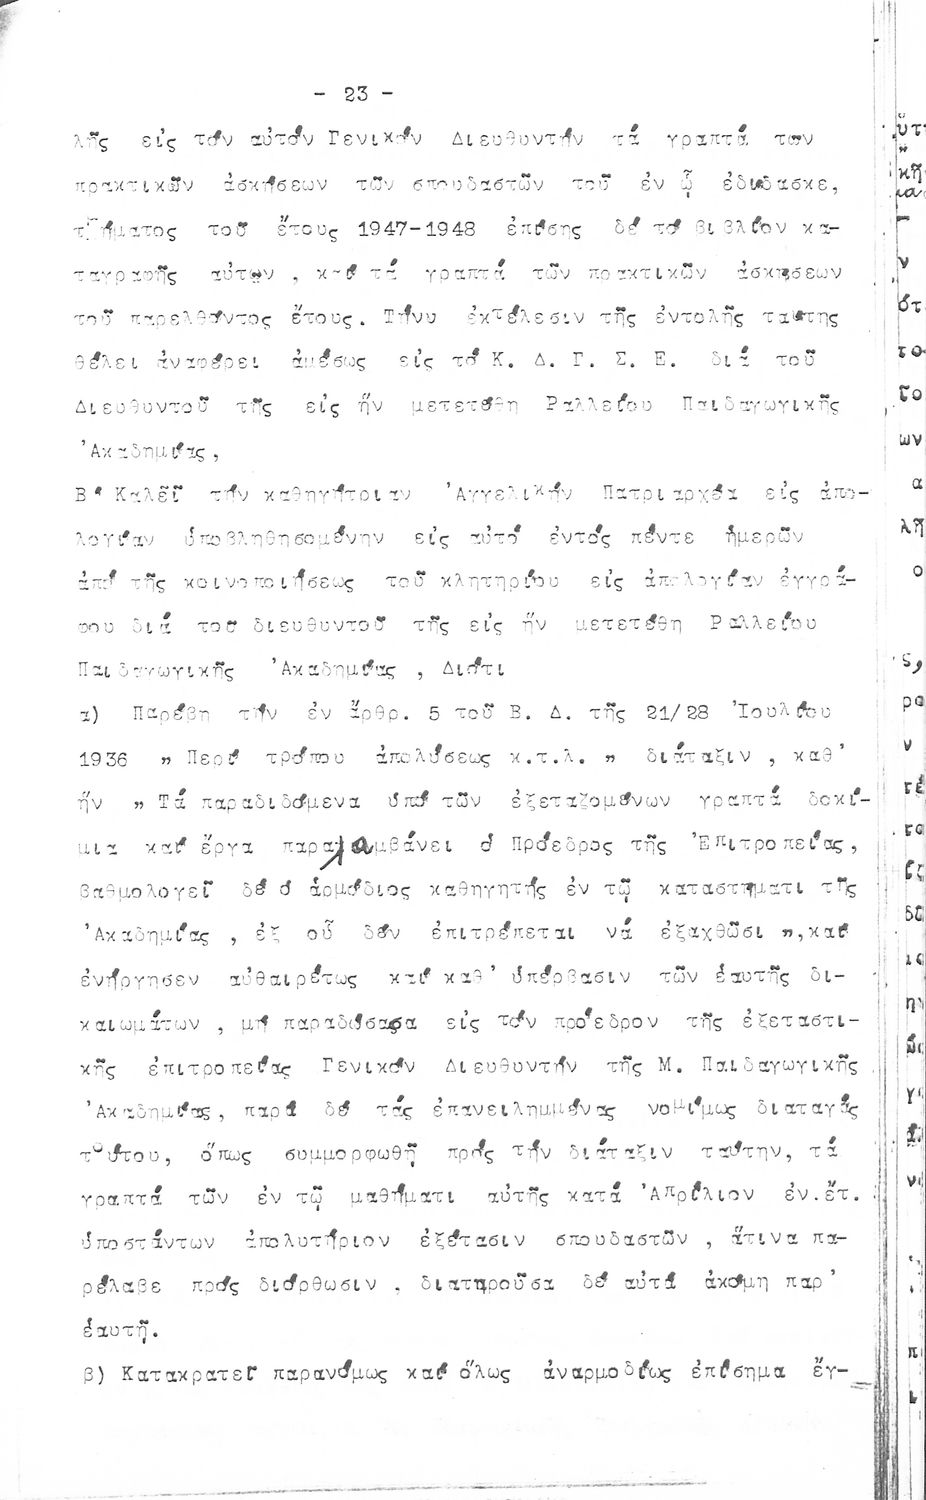 - 23 -
λῆς εἰς τόν αὐτόν Γενικόν Διευθυντήν τά γραπτά των
πρακτικῶν ἀσκήσεων τῶν σπουδαστῶν τοῦ ἐν ᾧ ἐδίδασκε,
τμήματος τοῦ ἔτους 1947-1948 ἐπίσης δέ τό βιβλίον κα-
ταγραφῆς αὐτων , καί τά γραπτά τῶν πρακτικῶν ἀσκήσεων
τοῦ παρελθόντος ἔτους. Τήνυ ἐκτέλεσιν τῆς ἐντολῆς ταύτης
θέλει ἀναφέρει ἀμέσως εἰς τό Κ. Δ. Γ. Σ. Ε. διά τοῦ
Διευθυντοῦ τῆς εἰς ἥν μετετέθη Ραλλείου Παιδαγωγικῆς
'Ακαδημίας,
Β' Καλεῖ τήν καθηγήτριαν 'Αγγελικήν Πατριαρχέα εἰς ἀπο-
λογίαν ὑποβληθησομένην εἰς αὐτό ἐντός πέντε ἡμερῶν
ἀπό τῆς κοινοποιήσεως τοῦ κλητηρίου εἰς ἀπολογίαν ἐγγρά-
φου διά του διευθυντοῦ τῆς εἰς ἥν μετετέθη Ραλλείου
Παιδαγωγικῆς 'Ακαδημίας , Διότι
α) Παρέβη τήν ἐν ἄρθρ. 5 τοῦ Β. Δ. τῆς 21/28 'Ιουλίου
1936 " Περί τρόπου ἀπολύσεως κ.τ.λ. " διάταξιν , καθ'
ἥν " Τά παραδιδόμενα ὑπό τῶν ἐξεταζομένων γραπτά δοκί-
μια καί ἔργα παραλαμβάνει ὁ Πρόεδρος τῆς 'Επιτροπείας,
βαθμολογεῖ δέ ὁ ἁρμόδιος καθηγητής ἐν τῷ καταστήματι τῆς
'Ακαδημίας , ἐξ οὗ δέν ἐπιτρέπεται νά ἐξαχθῶσι ",καί
ἐνήργησεν αὐθαιρέτως καί καθ' ὑπέρβασιν τῶν ἑαυτῆς δι-
καιωμάτων , μή παραδώσασα εἰς τόν πρόεδρον τῆς ἐξεταστι-
κῆς ἐπιτροπείας Γενικόν Διευθυντήν τῆς Μ. Παιδαγωγικῆς
'Ακαδημίας, παρά δέ τάς ἐπανειλημμένας νομίμως διαταγάς
τούτου, ὅπως συμμορφωθῇ πρός τήν διάταξιν ταύτην, τά
γραπτά τῶν ἐν τῷ μαθήματι αὐτῆς κατά 'Απρίλιον ἐν.ἔτ.
ὑποστάντων ἀπολυτήριον ἐξέτασιν σπουδαστῶν , ἅτινα πα-
ρέλαβε πρός διόρθωσιν , διατηροῦσα δέ αὐτά ἀκόμη παρ'
ἑαυτῇ.
β) Κατακρατεῖ παρανόμως καί ὅλως ἀναρμοδίως ἐπίσημα ἔγ-